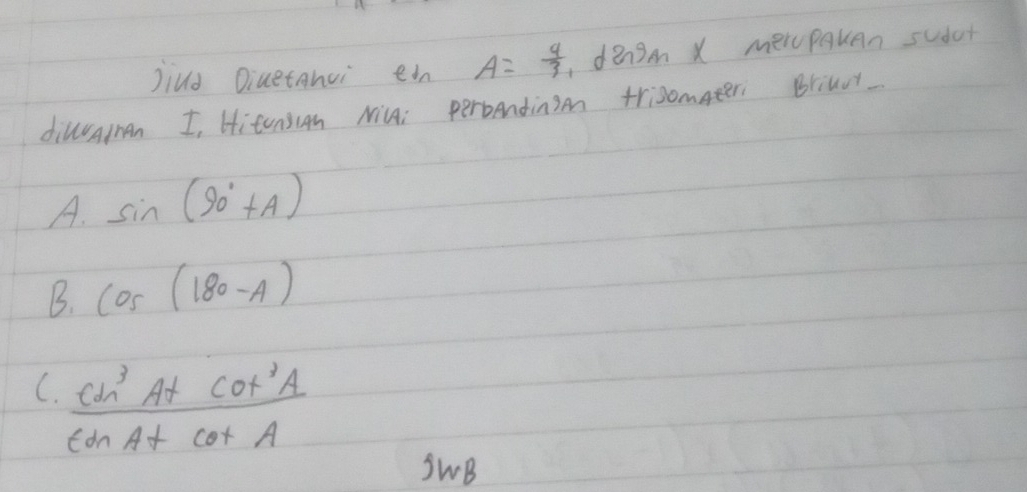 Jika Diketahui tan A = 4/3, dengan X merupakan sudut
dikuadran I. Hitunglah Nilai perbandingan trigomateri Brikut_
A. sin (90° + A)
B. Cos (180 - A)
C. tan³ A + cot³ A / tan A + cot A
JWB